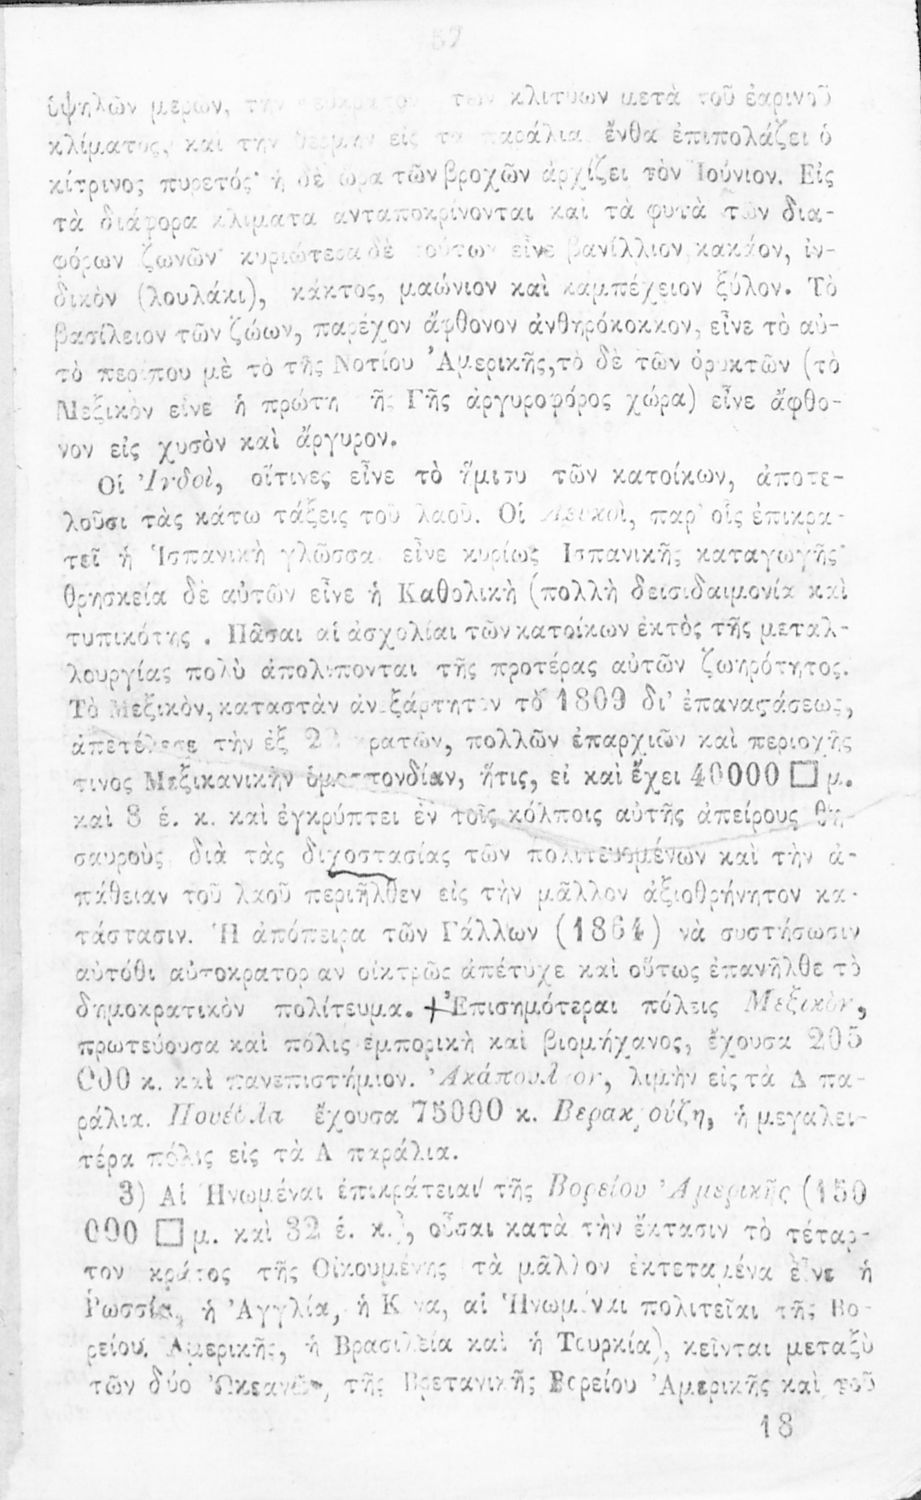 57
ὑψηλῶν μερῶν, την τῶν κλιτύων μετὰ τοῦ ἐαρινοῦ
κλίματος, καὶ την θερμην εἰς τα παράλια ἔνθα ἐπιπολάζει ὁ
κίτρινος πυρετός· ἡ δὲ ὥρα τῶν βροχῶν ἀρχίζει τὸν Ἰούνιον. Εἰς
τὰ διάφορα κλίματα ανταποκρίνονται καὶ τὰ φυτὰ τῶν δια-
φόρων ζωνῶν· κυριώτερα δὲ τούτων εἶνε βανίλλιον, κακάον, ἰν-
δικὸν (λουλάκι), κάκτος, μαώνιον καὶ καμπέχειον ξύλον. Τὸ
βασίλειον τῶν ζώων, παρέχον ἄφθονον ἀνθηρόκοκκον, εἶνε τὸ αὐ-
τὸ περίπου μὲ τὸ τῆς Νοτίου Ἀμερικῆς, τὸ δὲ τῶν ὀρυκτῶν (τὸ
Μεξικὸν εἶνε ἡ πρώτη τῆς Γῆς ἀργυροφόρος χώρα) εἶνε ἄφθο-
νον εἰς χυσὸν καὶ ἄργυρον.
Οἱ Ἰνδοὶ, οἵτινες εἶνε τὸ ἥμισυ τῶν κατοίκων, ἀποτε-
λοῦσι τὰς κάτω τάξεις τοῦ λαοῦ. Οἱ Λευκοὶ, παρ' οἷς ἐπικρα-
τεῖ ἡ Ἱσπανικὴ γλῶσσα εἶνε κυρίως Ισπανικῆς καταγωγῆς·
θρησκεία δὲ αὐτῶν εἶνε ἡ Καθολικὴ (πολλὴ δεισιδαιμονία καὶ
τυπικότης . Πᾶσαι αἱ ἀσχολίαι τῶν κατοίκων ἐκτὸς τῆς μεταλ-
λουργίας πολὺ ἀπολείπονται τῆς προτέρας αὐτῶν ζωηρότητος.
Τὸ Μεξικὸν, καταστὰν ἀνεξάρτητον τὸ 1809 δι' ἐπαναστάσεως,
ἀπετέλεσε τὴν ἐξ 22 κρατῶν, πολλῶν ἐπαρχιῶν καὶ περιοχῆς
τινος Μεξικανικὴν ὁμοσπονδίαν, ἥτις, εἰ καὶ ἔχει 40000 □ μ.
καὶ 8 ἑ. κ. καὶ ἐγκρύπτει ἐν τοῖς κόλποις αὐτῆς ἀπείρους θη-
σαυροὺς, διὰ τὰς διχοστασίας τῶν πολιτευομένων καὶ τὴν ἀ-
πάθειαν τοῦ λαοῦ περιῆλθεν εἰς τὴν μᾶλλον ἀξιοθρήνητον κα-
τάστασιν. Ἡ ἀπόπειρα τῶν Γάλλων (1864) νὰ συστήσωσιν
αὐτόθι αὐτοκρατορίαν οἰκτρῶς ἀπέτυχε καὶ οὕτως ἐπανῆλθε τὸ
δημοκρατικὸν πολίτευμα. Ἐπισημότεραι πόλεις Μεξικὸν,
πρωτεύουσα καὶ πόλις ἐμπορικὴ καὶ βιομήχανος, ἔχουσα 205
000 κ. καὶ πανεπιστήμιον. Ἀκάπουλκον, λιμὴν εἰς τὰ Δ πα-
ράλια. Πουέβλα ἔχουσα 75000 κ. Βερακρούζη, ἡ μεγαλει-
τέρα πόλις εἰς τὰ Α παράλια.
3) Αἱ Ἡνωμέναι ἐπικράτειαι τῆς Βορείου Ἀμερικῆς (150
000 □ μ. καὶ 32 ἑ. κ.), οὖσαι κατὰ τὴν ἔκτασιν τὸ τέταρ-
τον κράτος τῆς Οἰκουμένης τὰ μᾶλλον ἐκτεταμένα εἶνε ἡ
Ῥωσσία, ἡ Ἀγγλία, ἡ Κίνα, αἱ Ἡνωμέναι πολιτεῖαι τῆς Βο-
ρείου Ἀμερικῆς, ἡ Βρασιλεία καὶ ἡ Τουρκία), κεῖνται μεταξὺ
τῶν δύο Ὠκεανῶν, τῆς Βρετανικῆς Βορείου Ἀμερικῆς καὶ τοῦ
18